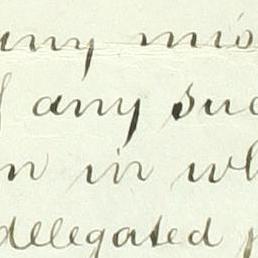 any mis
any suc
n in wh
delegated